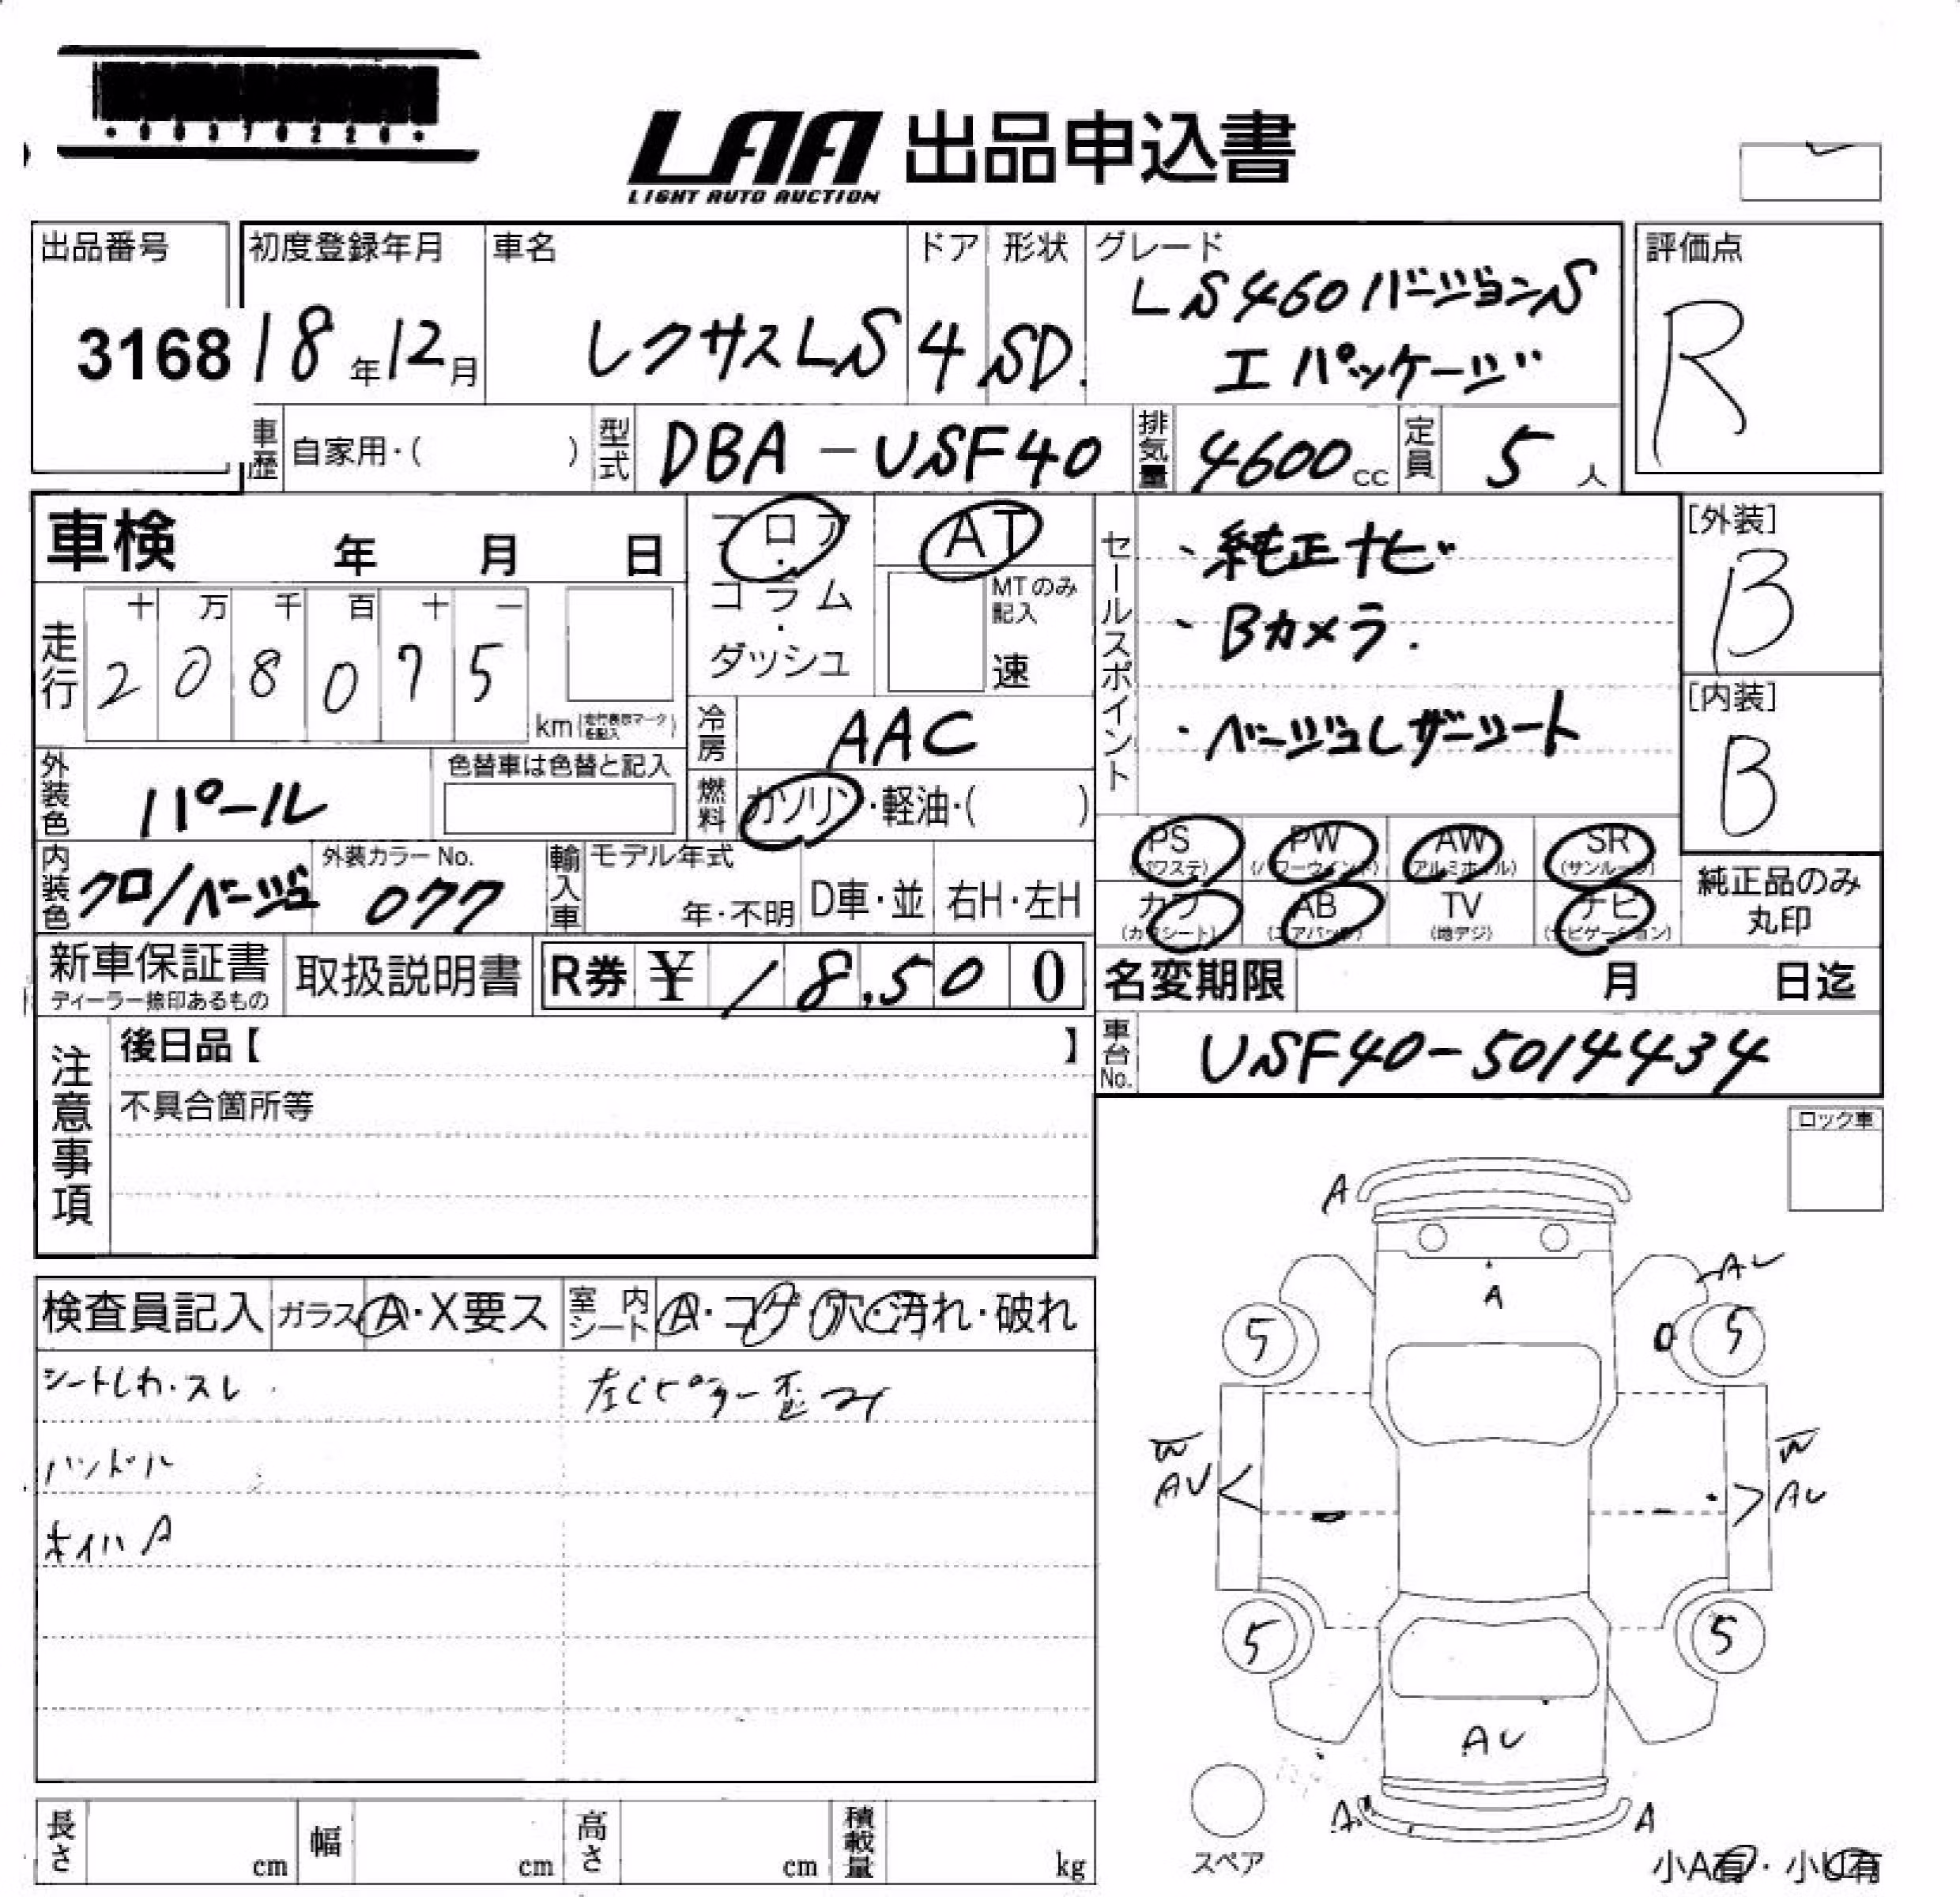 LAA 出品申込書
LIGHT AUTO AUCTION
出品番号
3168
初度登録年月
18年12月
車名
レクサスLS
ドア
4
形状
SD.
グレード
LS460バージョンS
エパッケージ
評価点
R
車歴 自家用・( )
型式 DBA-USF40
排気量 4600cc
定員 5人
車検 年 月 日
フロア・コラム・ダッシュ
AT
MTのみ記入
速
走行
十 万 千 百 十 一
2 0 8 0 7 5
km(走行表示マークを記入)
冷房 AAC
燃料 ガソリン・軽油・( )
セールスポイント
・純正ナビ
・Bカメラ.
・ベージュレザーシート
[外装]
B
[内装]
B
外装色 パール
色替車は色替と記入
内装色 クロ/ベージュ
外装カラーNo.
077
輸入車
モデル年式
年・不明
D車・並
右H・左H
PS (パワステ)
PW (パワーウインド)
AW (アルミホイル)
SR (サンルーフ)
カワ (カワシート)
AB (エアバッグ)
TV (地デジ)
ナビ (ナビゲーション)
純正品のみ
丸印
新車保証書
ディーラー捺印あるもの
取扱説明書
R券 ¥ 18,500
名変期限 月 日迄
車台No. USF40-5014434
注意事項
後日品【 】
不具合箇所等
ロック車
検査員記入
ガラス A・X要ス
室内シート A・コゲ・穴・汚れ・破れ
シートしわ・スレ
左Cピラー歪み
ハンドル
ホイルA
A
A
AU
5
5
W
AU
W
AU
5
5
AU
A
A
スペア
小A有・小U有
長さ cm
幅 cm
高さ cm
積載量 kg